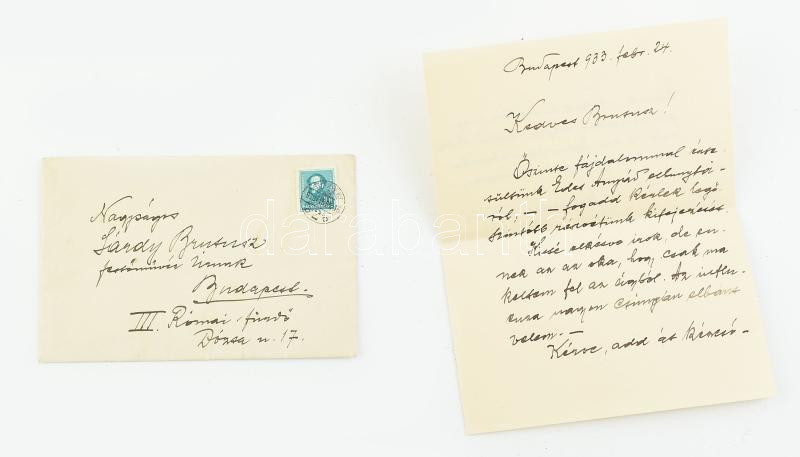 Nagyságos
Sárdy Brutusz
festőművész Úrnak
Budapest.
III. Római-fürdő
Dózsa u. 17.
Budapest 933. febr. 24.
Kedves Brutusz!
Őszinte fájdalommal érte-
sültünk Édes Anyád elhunytá-
ról; — - fogadd kérlek legő-
szintébb részvétünk kifejezését.
Kissé elkésve irok, de en-
nek az az oka, hogy csak ma
keltem fel az ágyból. Az influ-
enza nagyon csúnyán elbánt
velem. —
Kérve, add át kézcsó-
darabanth